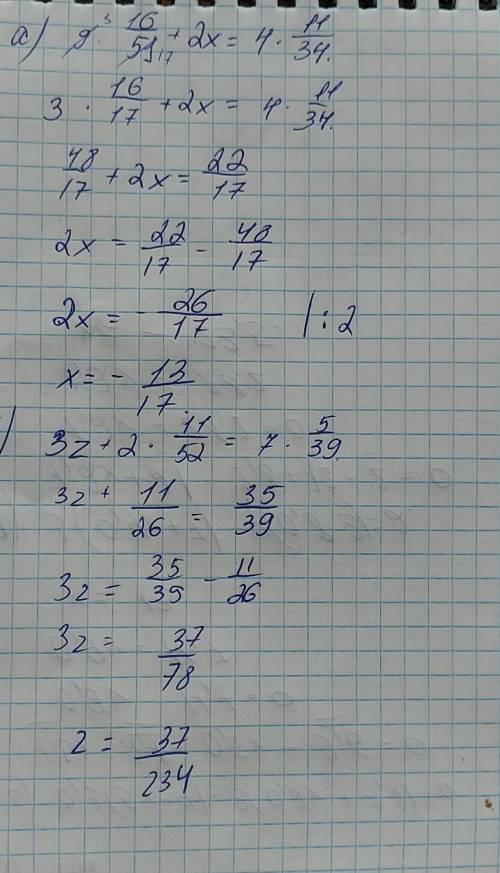 а) 9 · 16/51 + 2x = 4 · 11/34.
3 · 16/17 + 2x = 4 · 11/34.
48/17 + 2x = 22/17
2x = 22/17 - 48/17
2x = - 26/17 | : 2
x = - 13/17.
) 3z + 2 · 11/52 = 7 · 5/39.
3z + 11/26 = 35/39
3z = 35/39 - 11/26
3z = 37/78
z = 37/234